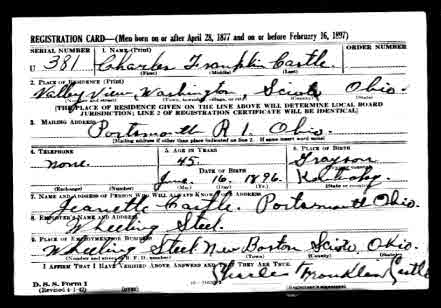 REGISTRATION CARD—(Men born on or after April 28, 1877 and on or before February 16, 1897)
SERIAL NUMBER 1. NAME (Print) ORDER NUMBER
U 381 Charles Franklin Castle.
(First) (Middle) (Last)
2. PLACE OF RESIDENCE (Print)
Valley View, Washington Scioto Ohio.
(Number and street) (Town, township, village, or city) (County) (State)
[THE PLACE OF RESIDENCE GIVEN ON THE LINE ABOVE WILL DETERMINE LOCAL BOARD
JURISDICTION; LINE 2 OF REGISTRATION CERTIFICATE WILL BE IDENTICAL]
3. MAILING ADDRESS
Portsmouth R 1. Ohio.
[Mailing address if other than place indicated on line 2. If same insert word same]
4. TELEPHONE 5. AGE IN YEARS 6. PLACE OF BIRTH
none. 45. Grayson
DATE OF BIRTH (Town or county)
June. 16. 1896. Kentucky
(Exchange) (Number) (Mo.) (Day) (Yr.) (State or country)
7. NAME AND ADDRESS OF PERSON WHO WILL ALWAYS KNOW YOUR ADDRESS
Jeanette Castle. Portsmouth Ohio.
8. EMPLOYER'S NAME AND ADDRESS
Wheeling Steel.
9. PLACE OF EMPLOYMENT OR BUSINESS
Wheeling Steel New Boston Scioto, Ohio.
(Number and street or R. F. D. number) (Town) (County) (State)
I AFFIRM THAT I HAVE VERIFIED ABOVE ANSWERS AND THAT THEY ARE TRUE.
D. S. S. Form 1 Charles Franklin Castle
(Revised 4-1-42)